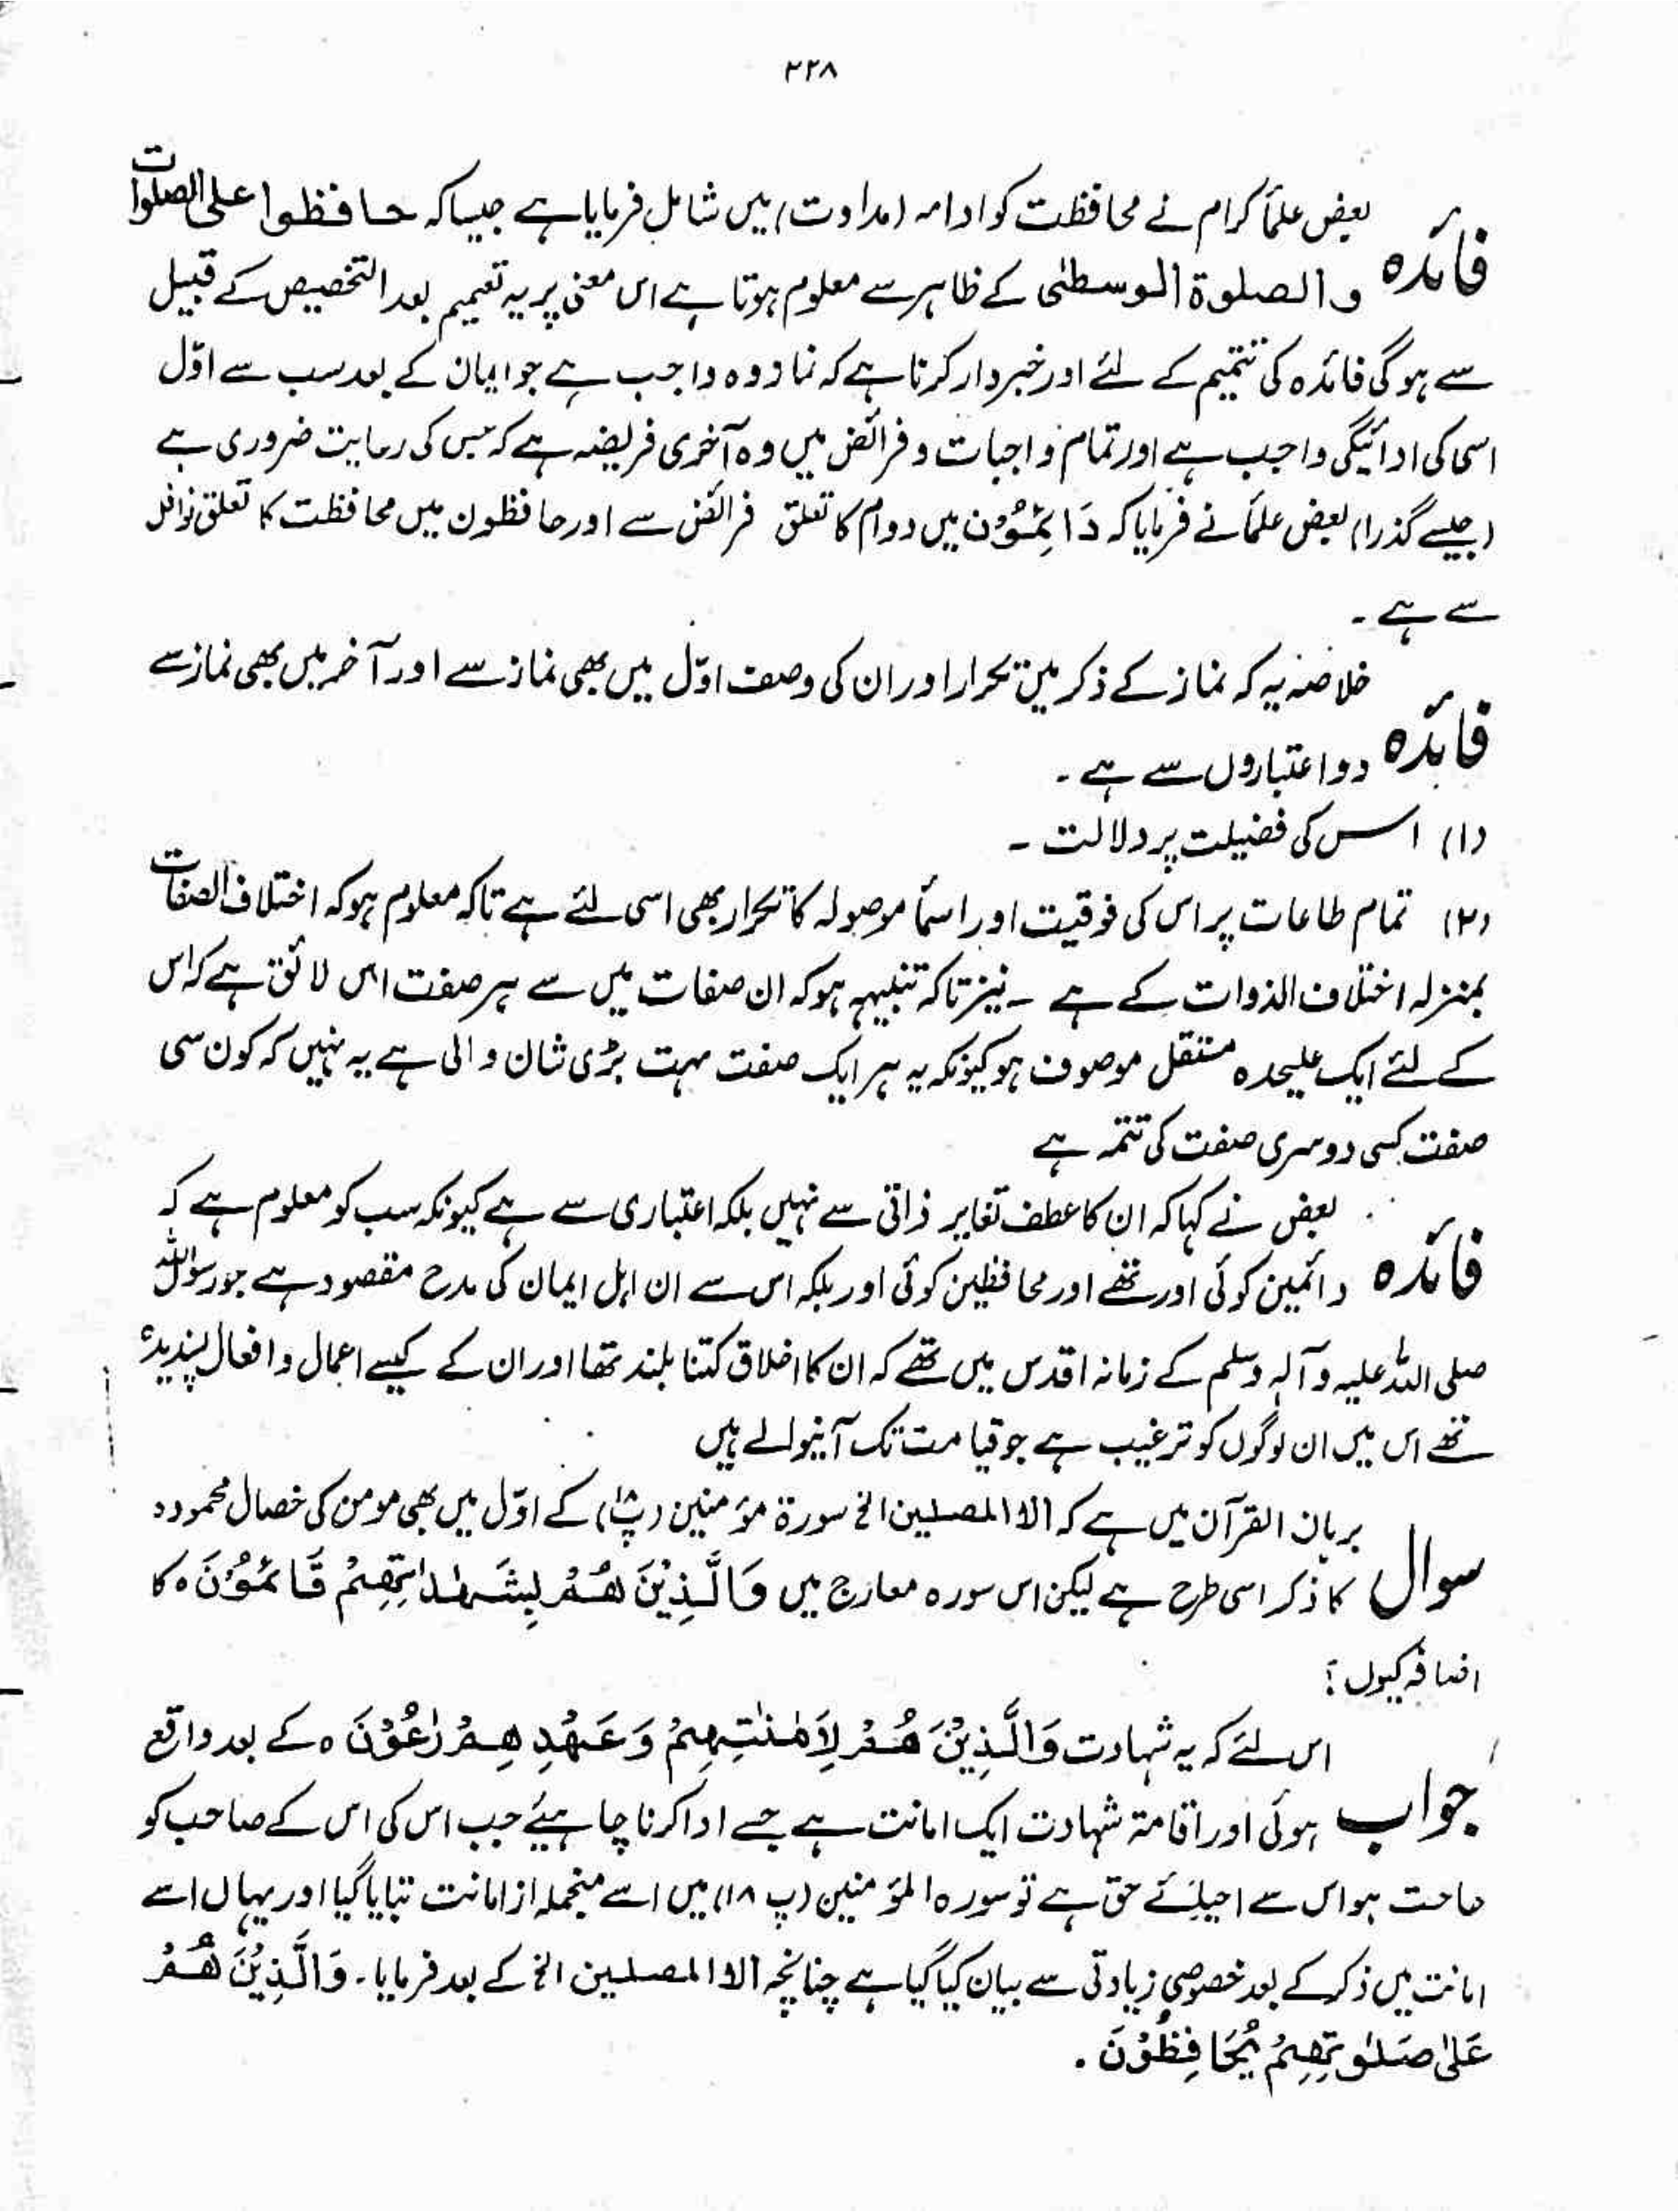 ۲۲۸
فائدہ بعض علمأ کرام نے محافظت کو ادامہ (مداوت) میں شامل فرمایا ہے جیسا کہ حافظوا علی الصلوات
والصلوۃ الوسطٰی کے ظاہر سے معلوم ہوتا ہے اس معنی پر یہ تعمیم بعد التخصیص کے قبیل
سے ہوگی فائدہ کی تتمیم کے لئے اور خبردار کرنا ہے کہ نماز وہ واجب ہے جو ایمان کے بعد سب سے اوّل
اسی کی ادائیگی واجب ہے اور تمام واجبات و فرائض میں وہ آخری فریضہ ہے کہ جس کی رعایت ضروری ہے
(جیسے گذرا) بعض علمأ نے فرمایا کہ دَائِمُوْن میں دوام کا تعلق فرائض سے اور حافظون میں محافظت کا تعلق نوافل
سے ہے ۔
فائدہ خلاصہ یہ کہ نماز کے ذکر میں تکرار اور ان کی وصف اوّل میں بھی نماز سے اور آخر میں بھی نماز سے
دو اعتباروں سے ہے ۔
(۱) اس کی فضیلت پر دلالت ۔
(۲) تمام طاعات پر اس کی فوقیت اور اسمأ موصولہ کا تکرار بھی اسی لئے ہے تاکہ معلوم ہو کہ اختلاف الصفات
بمنزلہ اختلاف الذوات کے ہے ۔ نیز تاکہ تنبیہہ ہو کہ ان صفات میں سے ہر صفت اس لائق ہے کہ اس
کے لئے ایک علیحدہ مستقل موصوف ہو کیونکہ یہ ہر ایک صفت بہت بڑی شان والی ہے یہ نہیں کہ کون سی
صفت کسی دوسری صفت کی تتمہ ہے
فائدہ بعض نے کہا کہ ان کا عطف تغایر ذاتی سے نہیں بلکہ اعتباری سے ہے کیونکہ سب کو معلوم ہے کہ
دائمین کوئی اور تھے اور محافظین کوئی اور بلکہ اس سے ان اہل ایمان کی مدح مقصود ہے جو رسول اللہ
صلی اللہ علیہ وآلہٖ وسلم کے زمانہ اقدس میں تھے کہ ان کا اخلاق کتنا بلند تھا اور ان کے کیسے اعمال و افعال پسندیدہ
تھے اس میں ان لوگوں کو ترغیب ہے جو قیامت تک آنیوالے ہیں
سوال برہان القرآن میں ہے کہ الا المصلین الخ سورۃ مؤمنین (پ۱۸) کے اوّل میں بھی مومن کی خصال محمودہ
کا ذکر اسی طرح ہے لیکن اس سورہ معارج میں وَالَّذِیْنَ ھُمْ بِشَھٰدٰتِھِمْ قَائِمُوْنَ ہ کا
اضافہ کیوں ؟
جواب اس لئے کہ یہ شہادت وَالَّذِیْنَ ھُمْ لِاَمٰنٰتِہِمْ وَعَہْدِ ھِمْ رٰعُوْنَ ہ کے بعد واقع
ہوئی اور اقامۃ شہادت ایک امانت ہے جسے ادا کرنا چاہیئے جب اس کی اس کے صاحب کو
حاجت ہو اس سے احیائے حق ہے تو سورہ المؤمنین (پ ۱۸) میں اسے منجملہ از امانت بتایا گیا اور یہاں اسے
امانت میں ذکر کے بعد خصوصی زیادتی سے بیان کیا گیا ہے چنانچہ الا المصلین الخ کے بعد فرمایا ۔ وَالَّذِیْنَ ھُمْ
عَلیٰ صَلٰوتِھِمْ یُحَافِظُوْنَ ۔